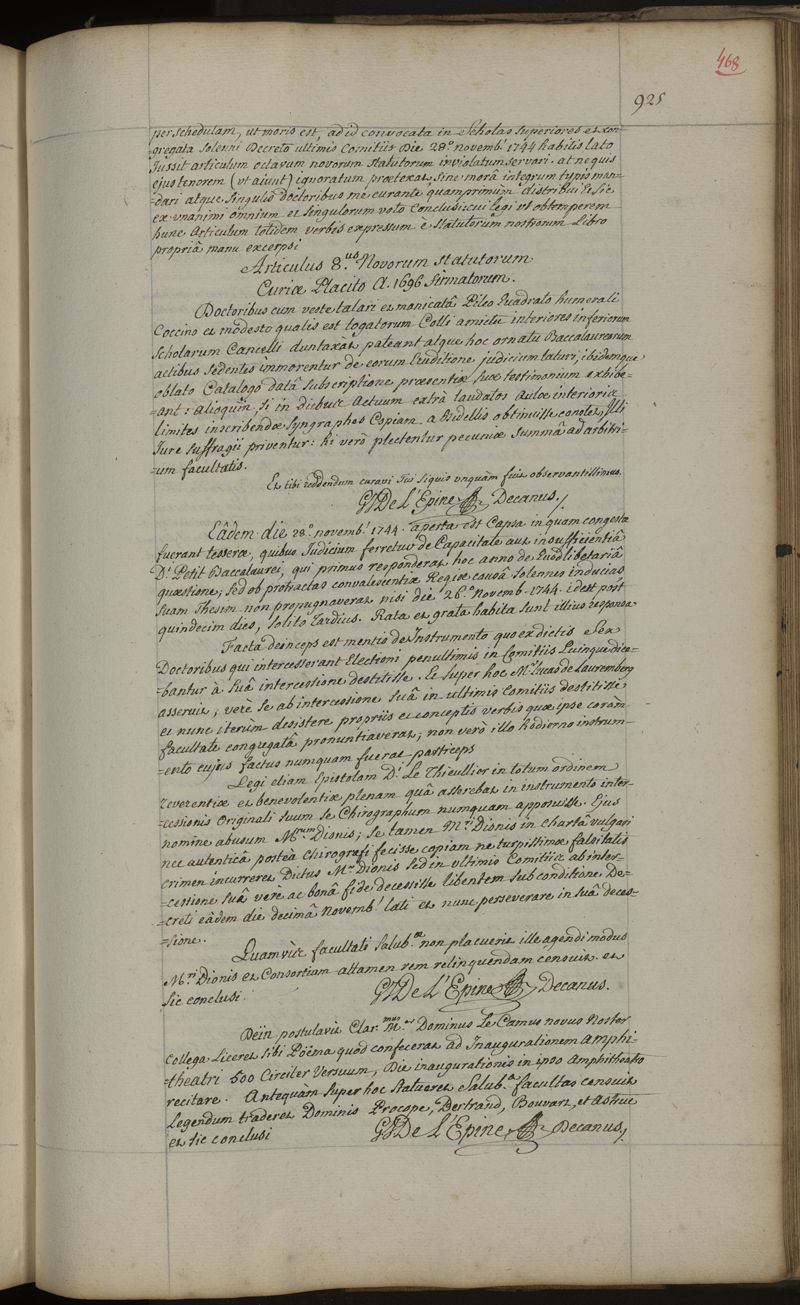 468
925
per schedulam, ut moris est, ad id convocata in Scholas Superiores et con-
gregata solenni Decreto ultimis Comitiis Die 28.° novemb.' 1744 habitis lato
Jussit articulum octavum novorum Statutorum inviolatum servari. at ne quis
ejus tenorem (ut aiunt) ignoratum prætexat, sine morâ integrum typis man=
=dari atque singulis Doctoribus me curante quamprimùm distribui. Et sic
ex unanimi omnium et singulorum voto conclusi: cui legi ut obtemperem
hunc Articulum totidem verbis expressum e statutorum nostrorum Libro
propriâ manu excerpsi
Articulus 8.us Novorum Statutorum
Curiæ Placito A. 1696 firmatorum.
Doctoribus cum veste talari et manicatâ Pileo Quadrato humerali
Coccino et modesto qualis est togatorum Colli amictu interiores inferiorum
Scholarum Cancelli duntaxàt pateant atque hoc ornatu Baccalaureorum
actibus sedentes immorentur de eorum Eruditione judicium laturi, ibidemque
oblato Catalogo datâ subscriptione præsentiæ suæ testimonium exhibe=
=ant: alioquin, si in diebus Actuum extrà laudatos Aulæ interioris
limites inscribendæ Syngraphæ Copiam a Bidellis obtinuisse constet, Illi
Jure Suffragii priventur: hi verò plectentur pecuniæ summâ ad arbitri-
=um facultatis.
Et tibi reddendum curavi Jus siquis unquàm fuit observantissimus.
GJ De L'Epine Decanus.
Eâdem die 28.° novemb.' 1744. aperta est Capsa in quam congestæ
fuerant tesseræ, quibus Judicium ferretur de Capacitate aut insufficientiâ
D.i Petit Baccalaurei, qui primus responderat hoc anno de Quodlibetariâ
quæstione; sed ob protractas convalescentiæ Regiæ causâ solennes inducias
suam Thesim non propugnaverat nisi die 26.° Novemb. 1744. idest post
quindecim dies, solito tardius. Rata et grata habita sunt illius responsa
Facta deinceps est mentio de Instrumento quo ex dictis Sex
Doctoribus qui intercesserant Electioni penultimis in Comitiis Quinque dice=
=bantur à suâ intercessione destitisse. Et super hoc M.r Lucas de Lauremberg
asseruit, verè se ab intercessione suâ in ultimis Comitiis destitisse
et nunc iterùm desistere propriis et conceptis verbis quæ ipse coram
facultate congregatâ pronuntiaverat; non verò illo hodierno instrum-
=ento cujus factus numquam fuerat particeps
Legi etiam Epistolam D.i Le Thieullier in totum ordinem
reverentiæ et benevolentiæ plenam quâ asserebat in instrumento inter-
=cessionis Originali suum se Chirographum numquam apposuisse. Ejus
nomine abusum M.rum Dionis; se tamen M.ri Dionis in chartâ vulgari
nec autenticâ posteà chirografi fecisse copiam ne turpissimæ falsitatis
crimen incurreret Dictus M.r Dionis sed in ultimis Comitiis ab inter-
=cessione suâ verè ac bonâ fide decessisse libentem sub conditione De-
=creti eâdem die decimâ novemb.' lati et nunc perseverare in suâ deces=
=sione.
Quamvis facultati Salub.æ non placuerit ille agendi modus
M.ri Dionis et Consortium attamen rem relinquendam censuit. et
sic conclusi.
GJ De L'Epine Decanus.
Dein postulavit Clar.mus M.er Dominus Le Camus novus Noster
Collega liceret sibi Poëma quod confecerat ad Inaugurationem amphi-
=theatri 500 Circiter Versuum, Die inaugurationis in ipso Amphitheatro
recitare. Antequàm super hoc statueret Salub.a facultas censuit
Legendum traderet Dominis Procope, Bertrand, Bouvart, et Astruc
et sic conclusi
GJ De L'Epine Decanus